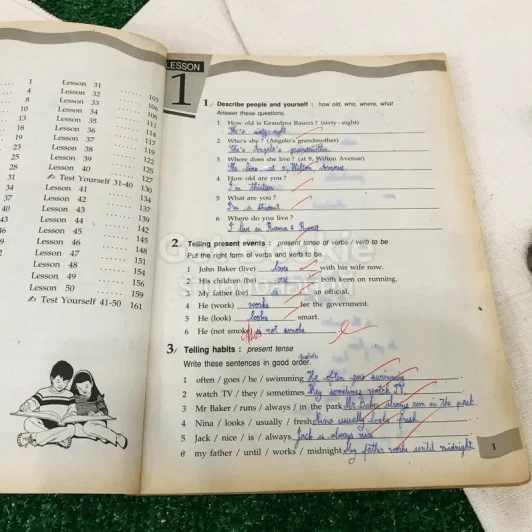 1 Lesson 31 103
4 Lesson 32 106
8 Lesson 33 108
10 Lesson 34 111
13 Lesson 35 114
16 Lesson 36 117
19 Lesson 37 119
23 Lesson 38 122
25 Lesson 39 125
28 Lesson 40 127
31 Test Yourself 31-40 130
34 Lesson 41 134
37 Lesson 42 137
40 Lesson 43 139
43 Lesson 44 142
45 Lesson 45 145
Lesson 46 147
Lesson 47 149
Lesson 48 151
Lesson 49 156
Lesson 50 159
Test Yourself 41-50 161
LESSON
1
1 Describe people and yourself : how old, who, where, what
Answer these questions.
1 How old is Grandma Raucci ? (sixty - eight)
He's sixty-eight
2 Who's she ? (Angelo's grandmother)
She's Angelo's grandmother
3 Where does she live ? (at 9, Wilton Avenue)
He lives at 9, Wilton Avenue
4 How old are you ?
I'm thirteen
5 What are you ?
I'm a student
6 Where do you live ?
I live in
2 Telling present events : present tense of verbs / verb to be
Put the right form of verbs and verb to be.
1 John Baker (live) lives with his wife now.
2 His children (be) are both keen on running.
3 My father (be) is an official.
4 He (work) works for the government.
5 He (look) looks smart.
6 He (not smoke) is not smoke
does
3 Telling habits : present tense
Write these sentences in good order.
1 often / goes / he / swimming He often goes swimming
2 watch TV / they / sometimes They sometimes watch TV.
3 Mr Baker / runs / always / in the park Mr Baker always run in the park
4 Nina / looks / usually / fresh Nina usually looks fresh
5 Jack / nice / is / always Jack is always nice
6 my father / until / works / midnight My father works until midnight
1